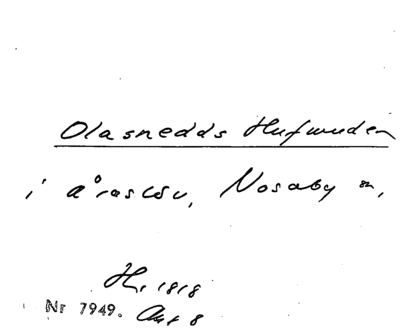 Olasnedds Hufwuden
i Åraslöv, Nosaby sn,
Hs. 1818
Nr 7949. Akt 8